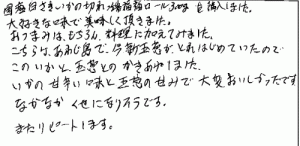 国産白さきいかの切れ端 徳用ロール 300g を購入しました。
大好きな味で美味しく頂きました。
おつまみは、もちろん、料理に加えてみました。
こちらは、あわじ島で、今新玉葱がとれはじめていたので
このいかと、玉葱とのかきあげしました。
いかの甘辛い味と玉葱の甘みで大変おいしかったです
なかなかくせになりそうです。
またリピートします。